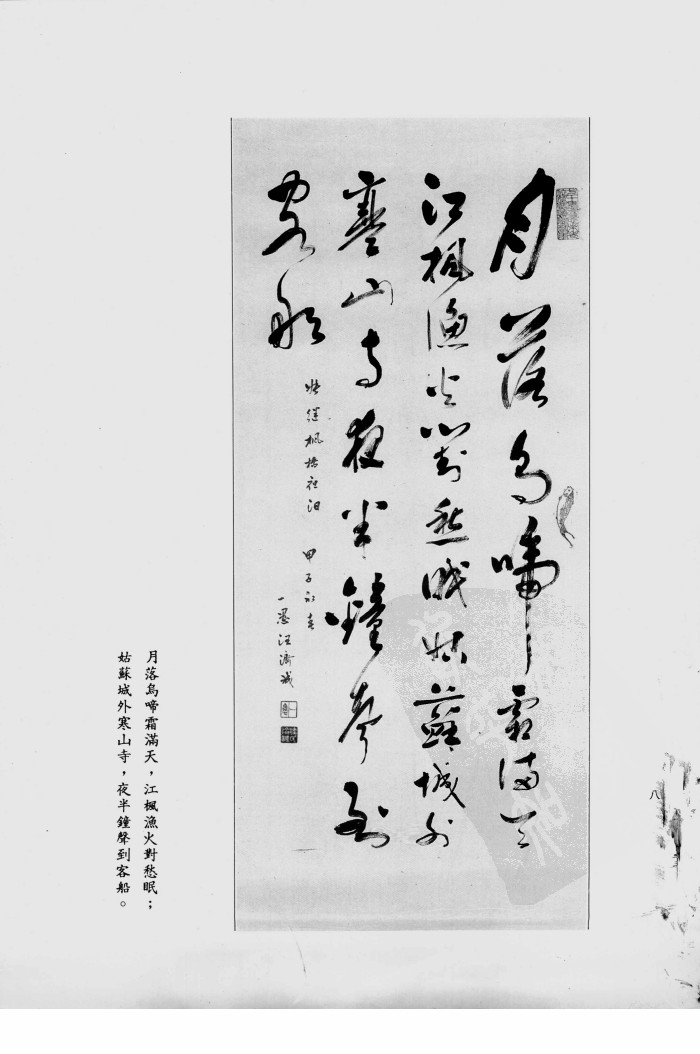 月落烏啼霜滿天
江楓漁火對愁眠姑蘇城外
寒山寺夜半鐘聲到
客船
張繼楓橋夜泊 甲子初春
一愚汪濟誠
月落烏啼霜滿天，江楓漁火對愁眠；
姑蘇城外寒山寺，夜半鐘聲到客船。
八